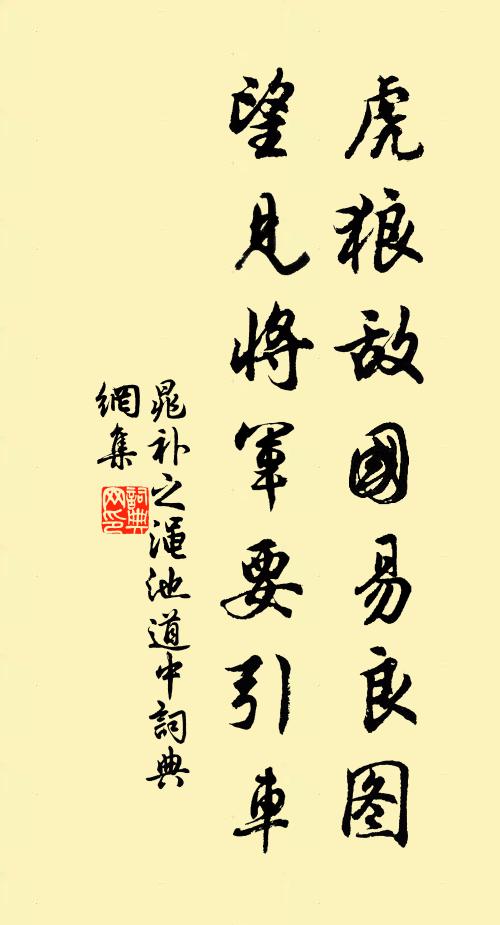 虎狼敌國易良图
望見將軍要引車
晁补之渑池道中詞典
網集
詞典
网印